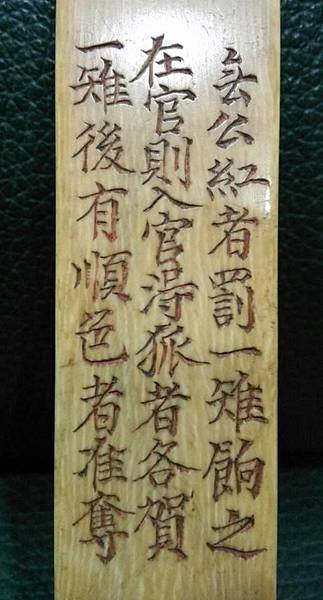 公紅者罰一雉餉之
在官則入官淂狐者各賀
一雉後有順色者准奪